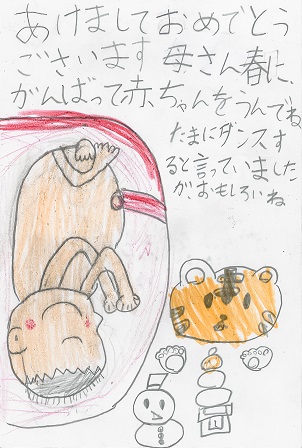 あけましておめでとう
ございます 母さん春に、
がんばって赤ちゃんをうんでね
たまにダンスす
ると言っていました
が、おもしろいね